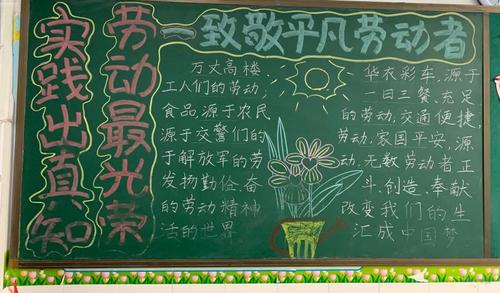 劳动最光荣
实践出真知
—致敬平凡劳动者
万丈高楼 华衣彩车,源于
工人们的劳动; 一日三餐,充足
食品,源于农民 的劳动,交通便捷,
源于交警们的 劳动,家国平安,源
于解放军的劳 动,无数劳动者正
发扬勤俭、奋 斗、创造、奉献
的劳动精神 改变我们的生
活的世界 汇成中国梦